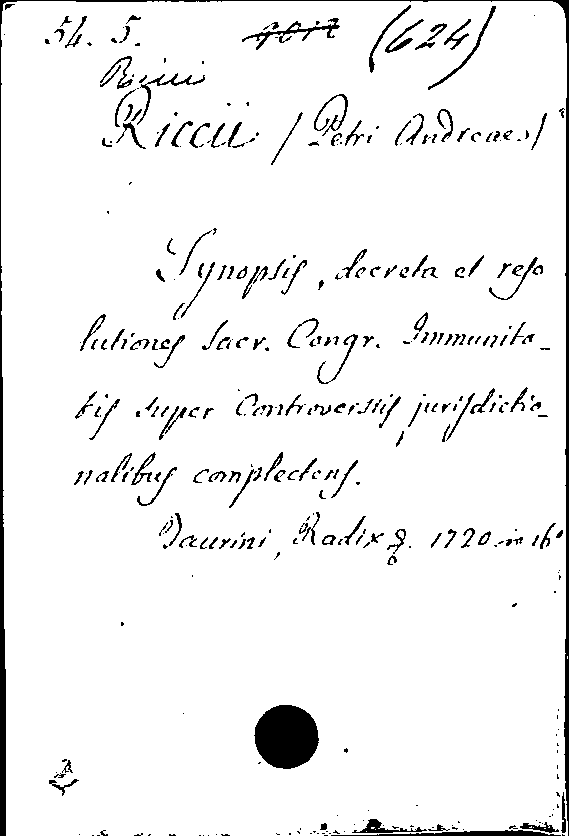 54. 5. (624)
Ricci
Riccii (Petri Andreae)
Synopsis, decreta et reso
lutiones Sacr. Congr. Immunita-
tis super Controversiis jurisdictio-
nalibus complectens.
Taurini, Radix 1720 in 16°